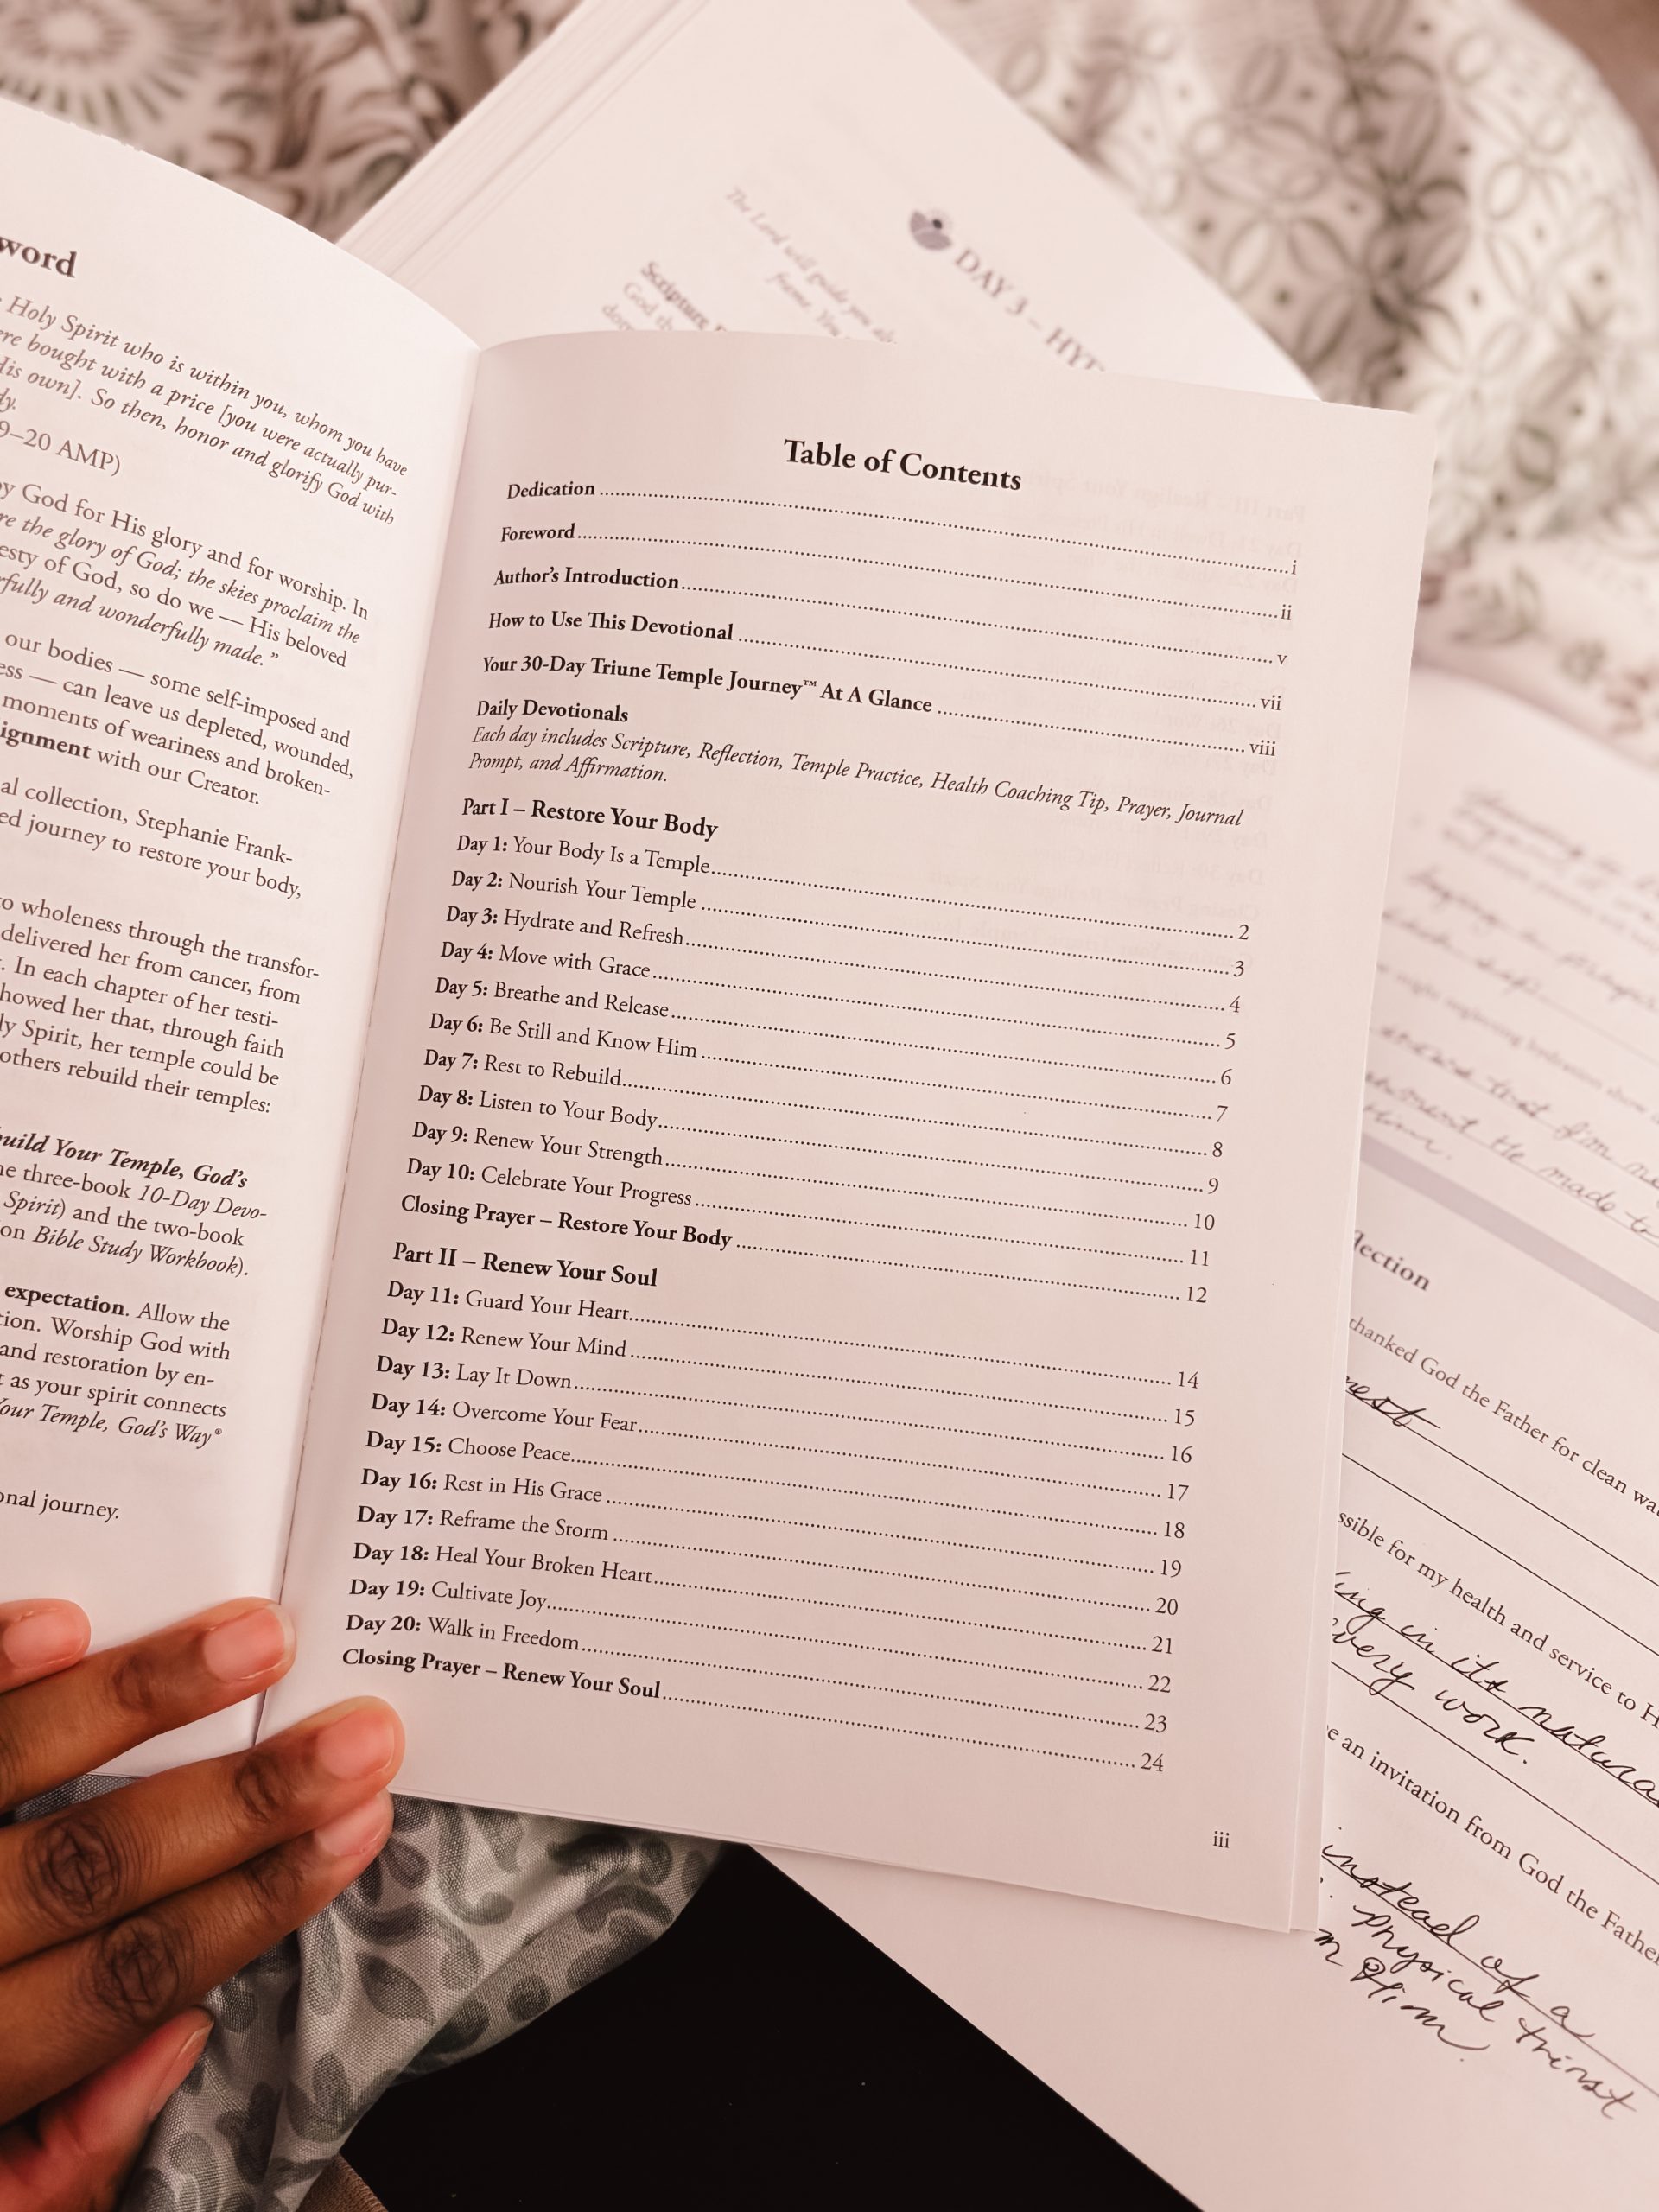 word
Holy Spirit who is within you, whom you have
ere bought with a price [you were actually pur-
His own]. So then, honor and glorify God with
dy.
9–20 AMP)
by God for His glory and for worship. In
re the glory of God; the skies proclaim the
esty of God, so do we — His beloved
rfully and wonderfully made.”
our bodies — some self-imposed and
ess — can leave us depleted, wounded,
moments of weariness and broken-
ignment with our Creator.
al collection, Stephanie Frank-
ed journey to restore your body,
to wholeness through the transfor-
delivered her from cancer, from
. In each chapter of her testi-
howed her that, through faith
ly Spirit, her temple could be
others rebuild their temples:
build Your Temple, God’s
he three-book 10-Day Devo-
Spirit) and the two-book
on Bible Study Workbook).
expectation. Allow the
tion. Worship God with
and restoration by en-
t as your spirit connects
Your Temple, God’s Way®
onal journey.
Table of Contents
Dedication i
Foreword ii
Author’s Introduction v
How to Use This Devotional vii
Your 30-Day Triune Temple Journey™ At A Glance viii
Daily Devotionals
Each day includes Scripture, Reflection, Temple Practice, Health Coaching Tip, Prayer, Journal
Prompt, and Affirmation.
Part I – Restore Your Body
Day 1: Your Body Is a Temple 2
Day 2: Nourish Your Temple 3
Day 3: Hydrate and Refresh 4
Day 4: Move with Grace 5
Day 5: Breathe and Release 6
Day 6: Be Still and Know Him 7
Day 7: Rest to Rebuild 8
Day 8: Listen to Your Body 9
Day 9: Renew Your Strength 10
Day 10: Celebrate Your Progress 11
Closing Prayer – Restore Your Body 12
Part II – Renew Your Soul
Day 11: Guard Your Heart 14
Day 12: Renew Your Mind 15
Day 13: Lay It Down 16
Day 14: Overcome Your Fear 17
Day 15: Choose Peace 18
Day 16: Rest in His Grace 19
Day 17: Reframe the Storm 20
Day 18: Heal Your Broken Heart 21
Day 19: Cultivate Joy 22
Day 20: Walk in Freedom 23
Closing Prayer – Renew Your Soul 24
iii
DAY 3 – HYD
The Lord will guide you
frame. You
Scripture
God th
Him.
lection
thanked God the Father for clean wa
rest
ssible for my health and service to H
ing in its natura
every work.
e an invitation from God the Father
instead of a
physical thirst
m Him.